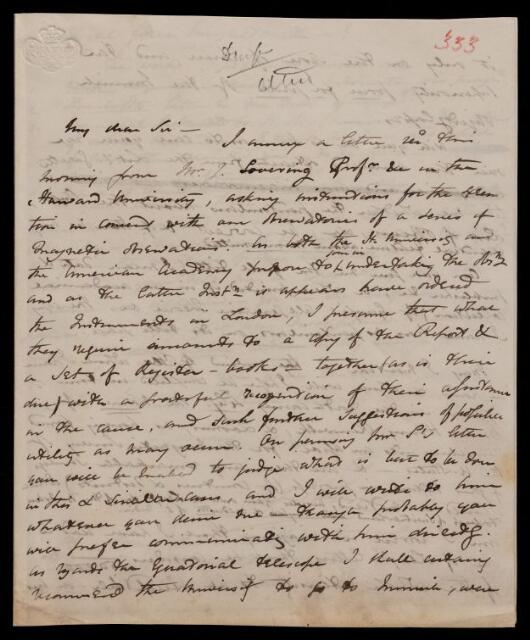 333
My dear Sir — I annex a letter recd this
morning from Mr J. Lovering Profr &c in the
Harvard University, asking instructions for the
tion in concert with our observatories of a series of
Magnetic observations. As both the H. University and
the American Academy propose to join in undertaking the Obsns
and as the latter Instn it appears have ordered
the Instruments in London, I presume that what
they require amounts to a copy of the Report &
a Set of Register-books — together (as is their
due) with a grateful recognition of their assistance
in the cause, and such further suggestions of possible
utility as may occur. On perusing Mr L's letter
you will be enabled to judge what is best to be done
in this & similar cases, and I will write to him
whatever you desire me — though probably you
will prefer communicating with him directly.
As regards the Equatorial telescope I shall certainly
recommend the University to go to Munich, were